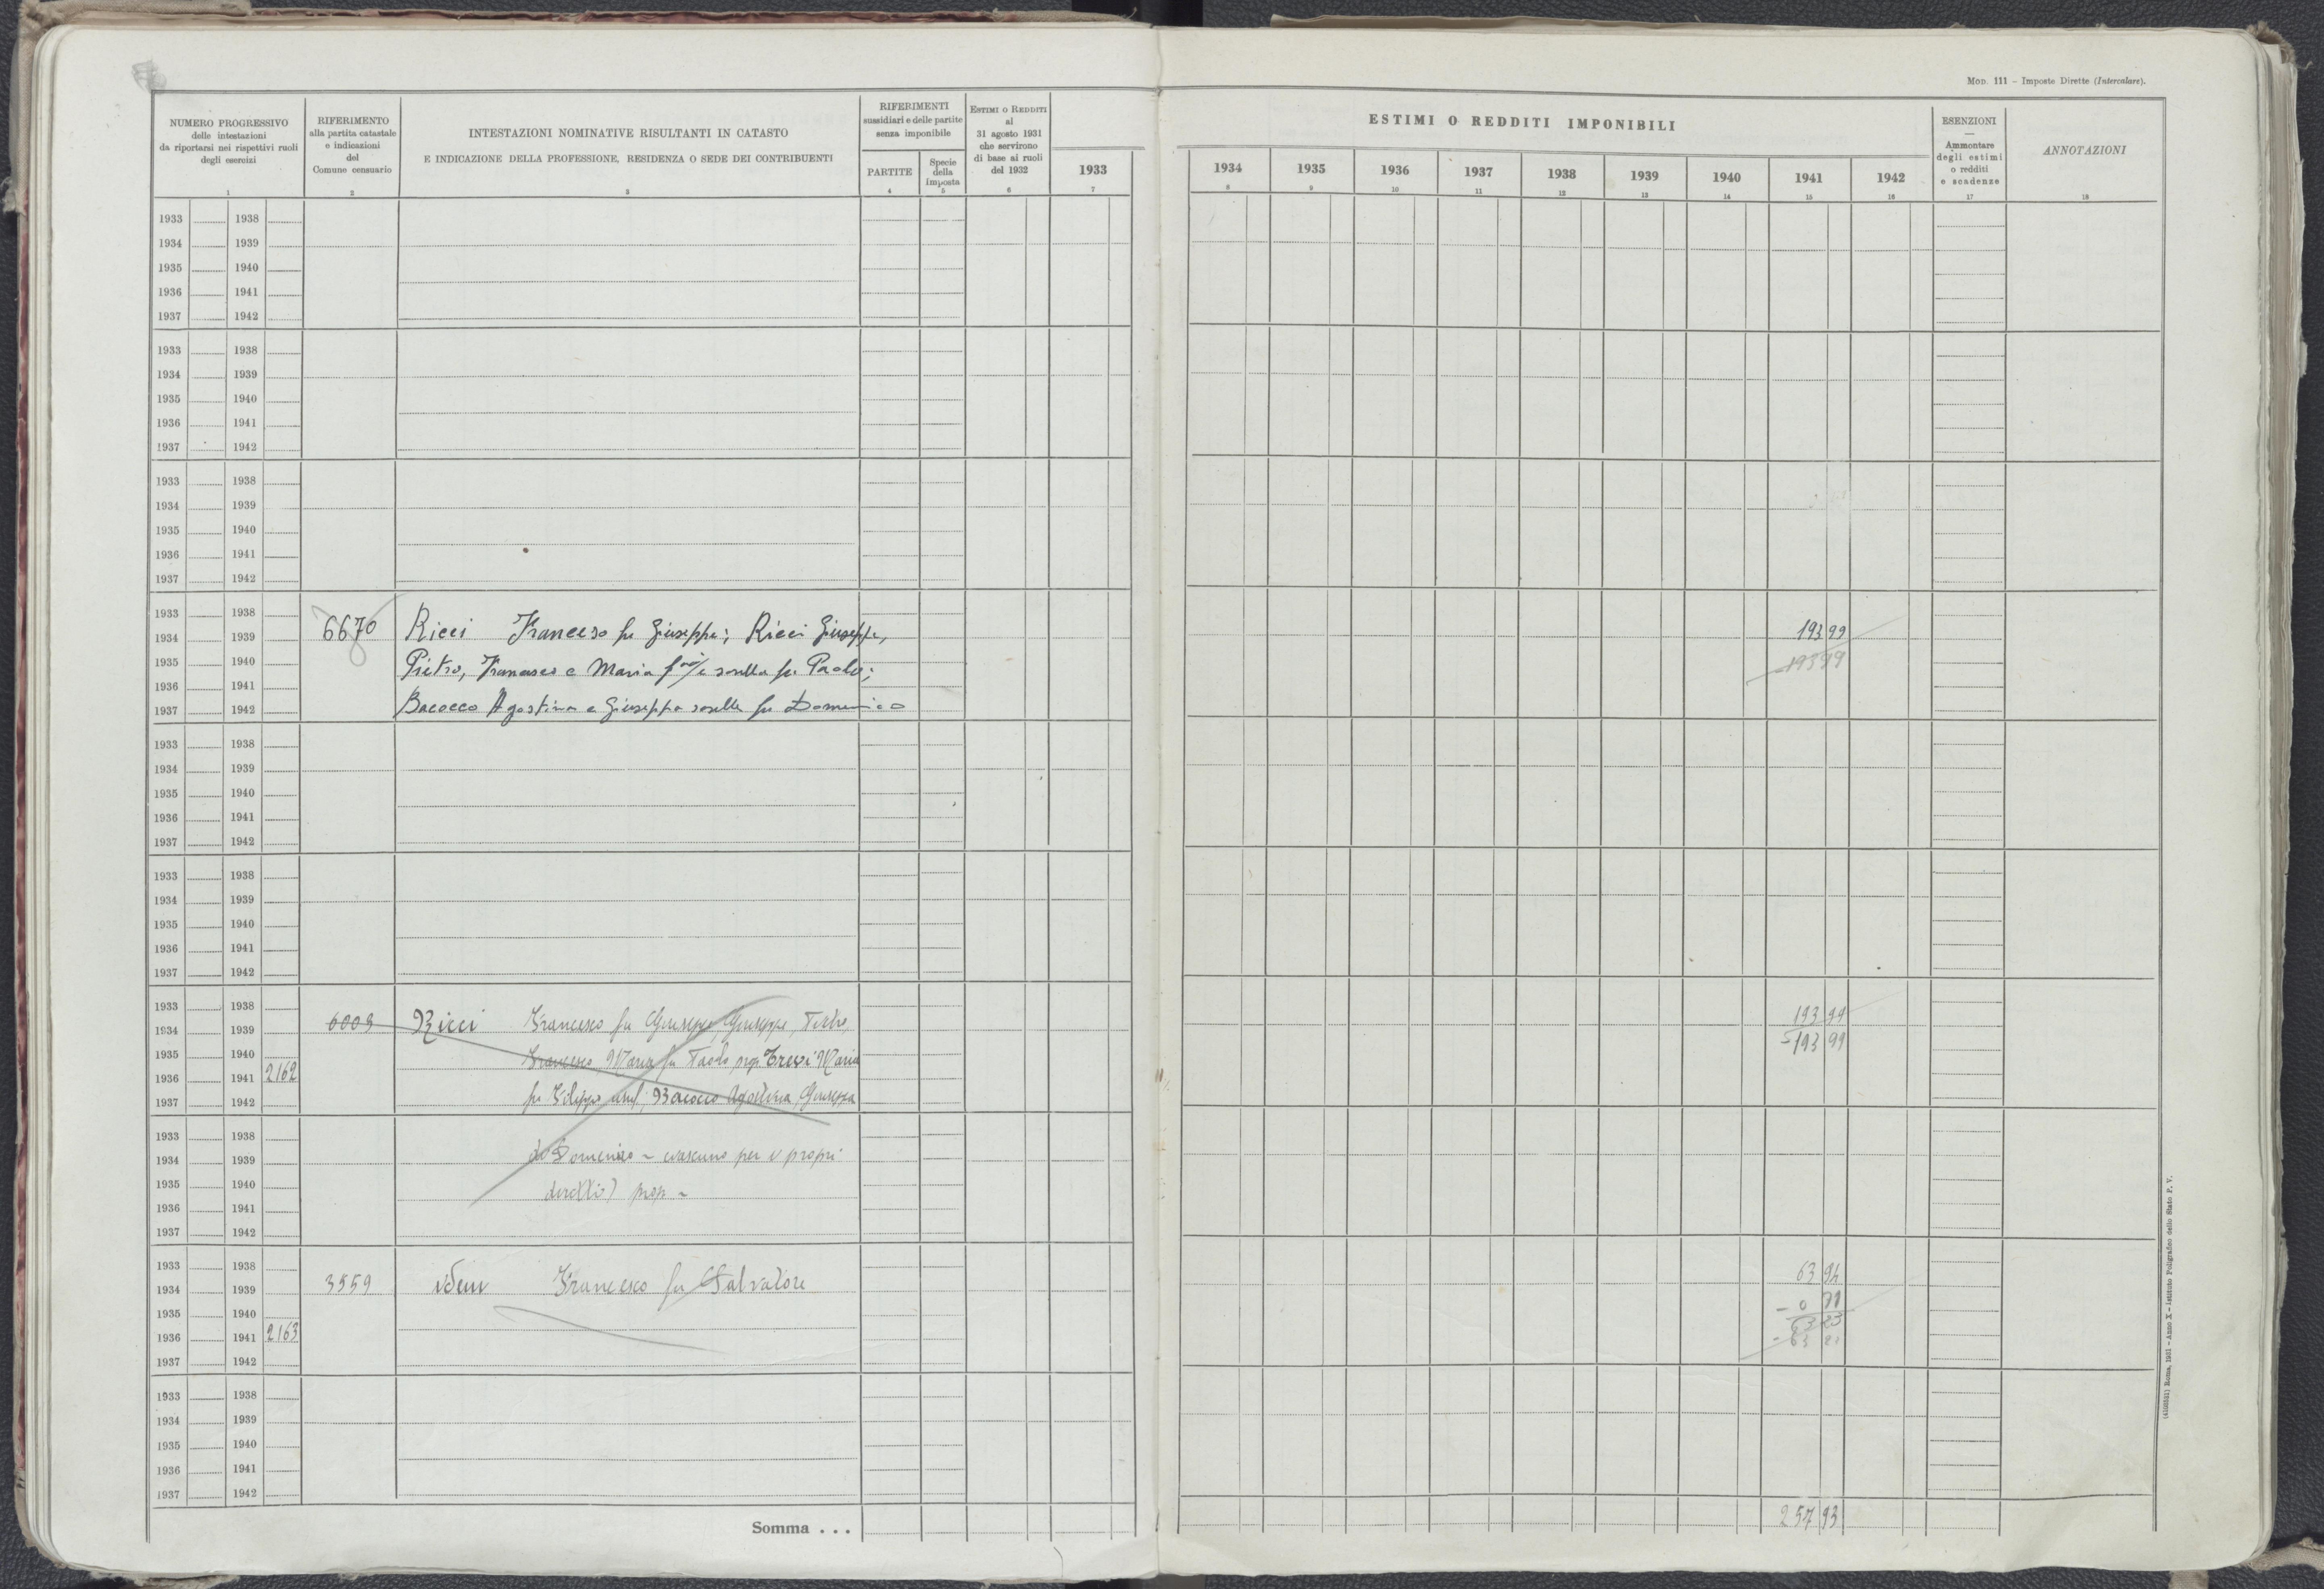 Mod. 111 - Imposte Dirette (Intercalare).
NUMERO PROGRESSIVO
delle intestazioni
da riportarsi nei rispettivi ruoli
degli esercizi
1
RIFERIMENTO
alla partita catastale
e indicazioni
del
Comune censuario
2
INTESTAZIONI NOMINATIVE RISULTANTI IN CATASTO
E INDICAZIONE DELLA PROFESSIONE, RESIDENZA O SEDE DEI CONTRIBUENTI
3
RIFERIMENTI
sussidiari e delle partite
senza imponibile
PARTITE
4
Specie
della
imposta
5
Estimi o Redditi
al
31 agosto 1931
che servirono
di base ai ruoli
del 1932
6
1933
7
ESTIMI O REDDITI IMPONIBILI
1934 1935 1936 1937 1938 1939 1940 1941 1942
8 9 10 11 12 13 14 15 16
ESENZIONI
Ammontare
degli estimi
o redditi
e scadenze
17
ANNOTAZIONI
18
1933 1938
1934 1939
1935 1940
1936 1941
1937 1942
1933 1938
1934 1939
1935 1940
1936 1941
1937 1942
1933 1938
1934 1939
1935 1940
1936 1941
1937 1942
1933 1938
1934 1939 6670 Ricci Francesco fu Giuseppe; Ricci Giuseppe, 193 99
1935 1940 Pietro, Francesco e Maria f.lli e sorella fu Paolo; - 193 99
1936 1941
1937 1942 Bacocco Agostina e Giuseppa sorelle fu Domenico
1933 1938
1934 1939
1935 1940
1936 1941
1937 1942
1933 1938
1934 1939
1935 1940
1936 1941
1937 1942
1933 1938
1934 1939 6003 Ricci Francesco fu Giuseppe, Giuseppe, Pietro, 193 99
1935 1940 Francesco Maria fu Paolo Maria - 193 99
1936 1941 2162
1937 1942 fu Filippo Bacocco Agostina, Giuseppa
1933 1938
1934 1939 di Domenico - ciascuno per i propri
1935 1940 diritti) prop -
1936 1941
1937 1942
1933 1938
1934 1939 3559 idem Francesco fu Salvatore 63 94
1935 1940 - 0 71
1936 1941 2163 63 23
1937 1942 - 63 23
1933 1938
1934 1939
1935 1940
1936 1941
1937 1942
Somma . . . 257 93
Roma, 1931 - Anno X - Istituto Poligrafico dello Stato P. V.